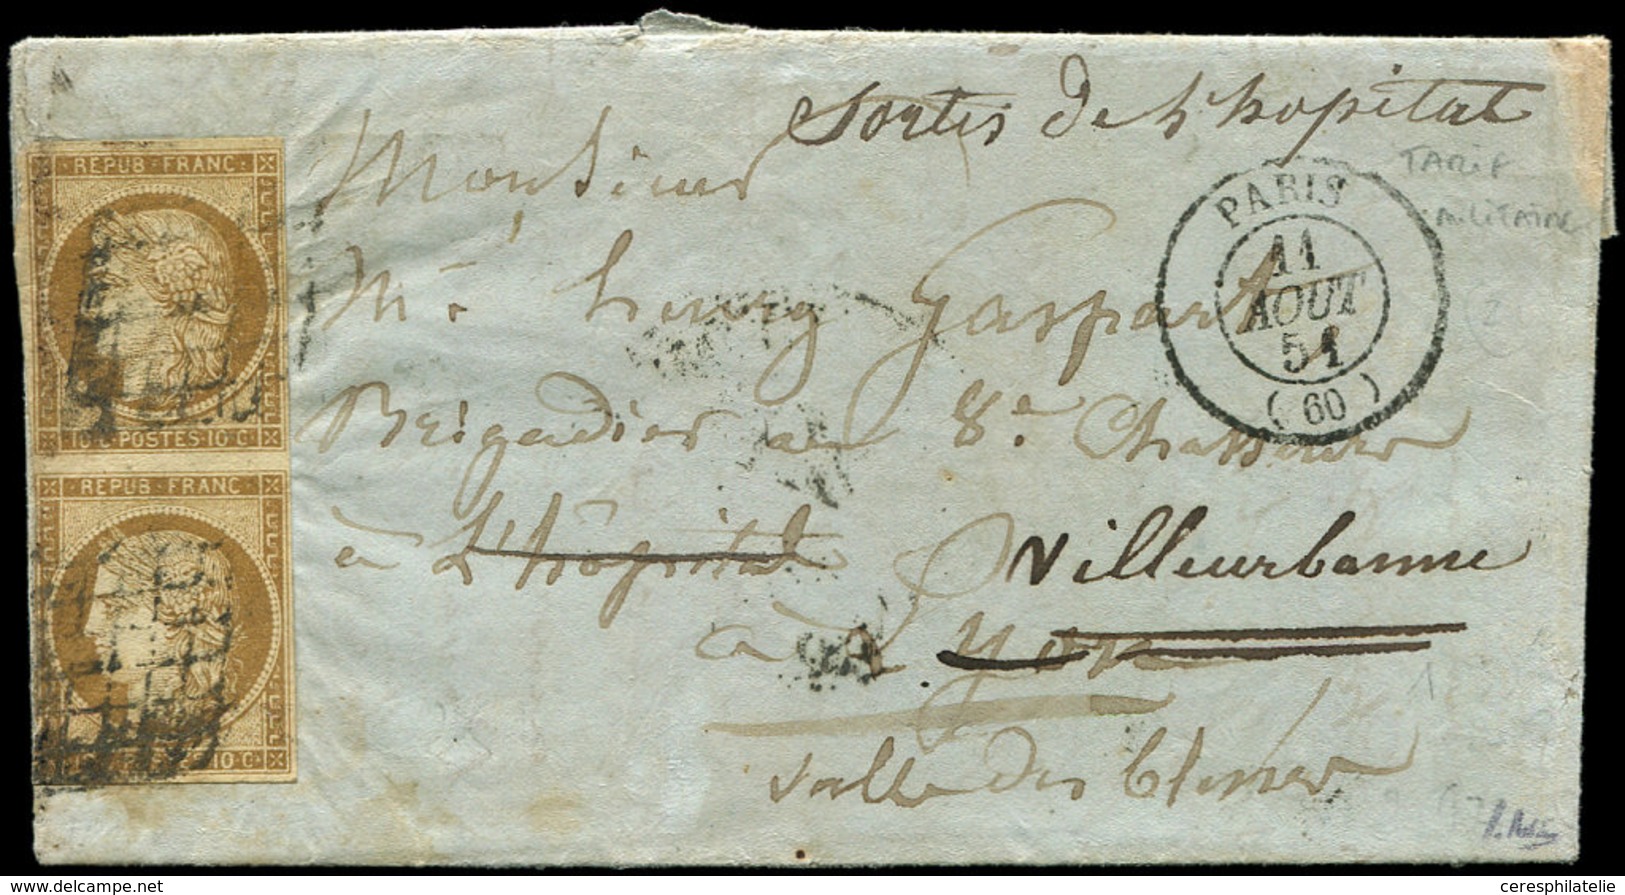 Sortis de l'hopital
TARIF
MILITAIRE
REPUB·FRANC·
10·C·POSTES·10·C·
REPUB·FRANC·
10·C·
PARIS
11
AOUT
51
(60)
Monsieur
Mr. henry Gaspart
Brigadier au 8e Chasseur
à L'hôpital Villeurbanne
à Lyon
Salle des blessés
ceresphilatelie
www.delcampe.net